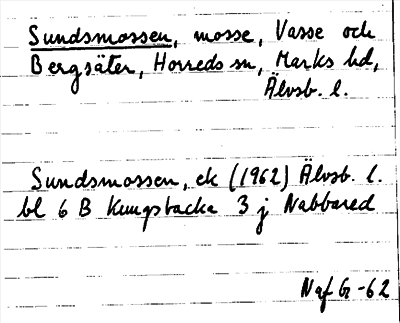 Sundsmossen, mosse, Vasse och
Bergsäter, Horreds sn, Marks hd,
Älvsb. l.
Sundsmossen, ek (1962) Älvsb. l.
bl 6 B Kungsbacka 3 j Nabbared
NqfG -62